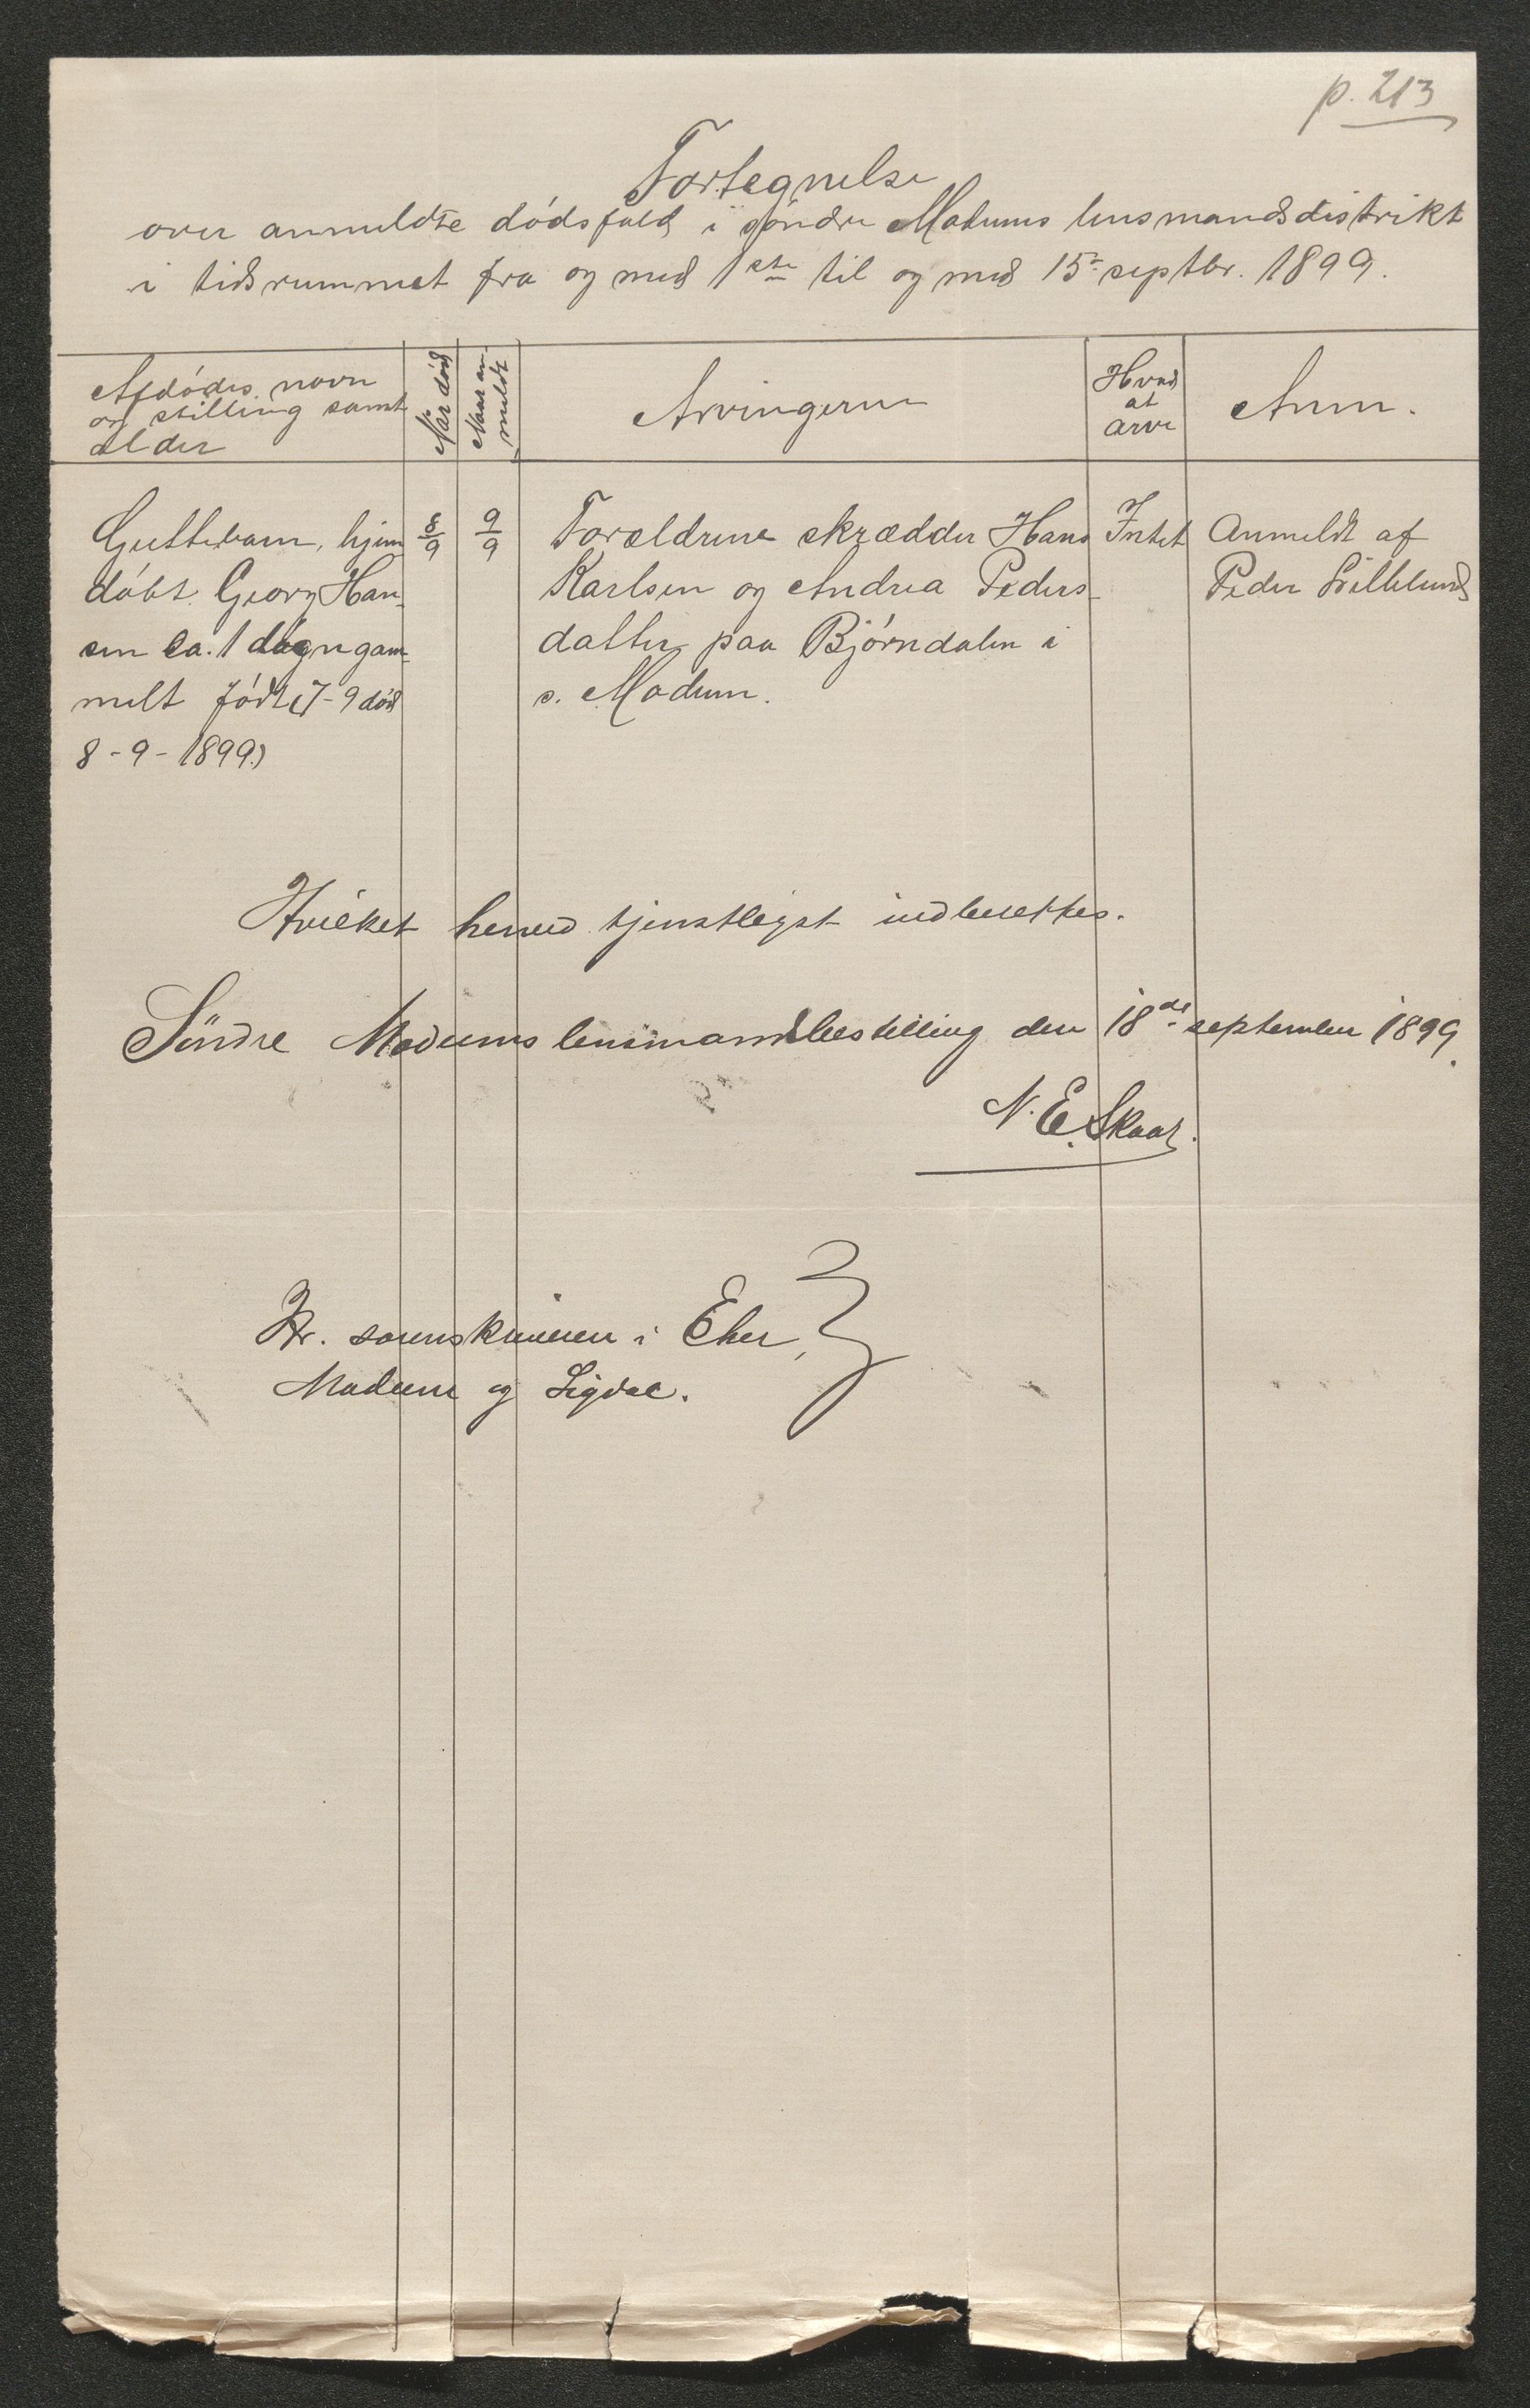 p. 213
Fortegnelse
over anmeldte dödsfald i söndre Modums lensmandsdistrikt
i tidsrummet fra og med 1ste til og med 15. septbr. 1899.
Afdödes navn
og stilling samt
alder
Når död
Naar an-
meldt
Arvingerne
Hvad
at
arve
Anm.
Guttebarn, hjem
döbt Georg Han-
sen ca. 1 dögn gam-
melt födt (7-9 död
8-9-1899)
8/9
9/9
Forældrene skrædder Hans
Karlsen og Andrea Peders-
datter paa Björndalen i
s. Modum.
Intet
Anmeldt af
Peder
Hvilket herved tjenstligst indberettes.
Söndre Modums lensmandsbestilling den 18de september 1899.
N. E. Skaar.
Hr. sorenskriveren i Eker,
Modum og Sigdal.